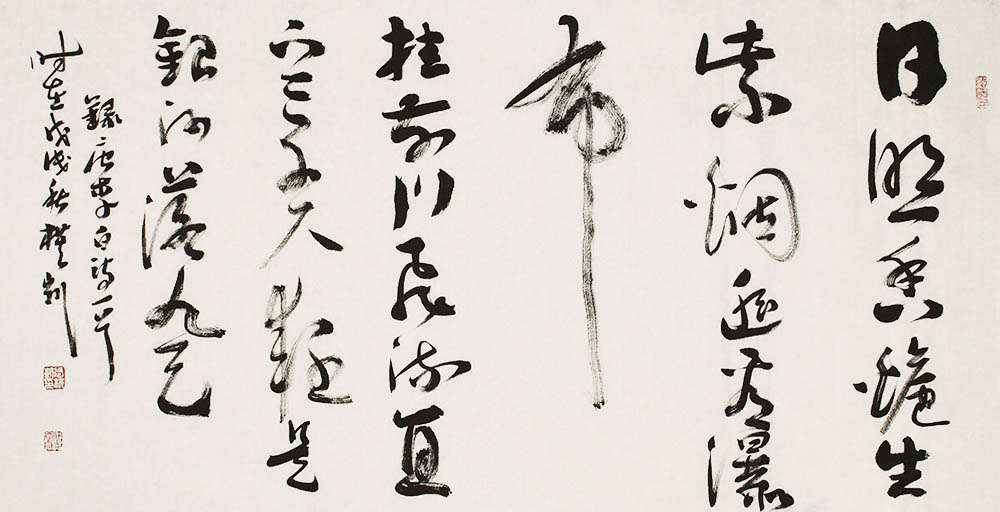 日照香爐生
紫烟遥看瀑
布
挂前川飛流直
下三千尺疑是
銀河落九天
錄唐李白詩一首
時在戊戌秋